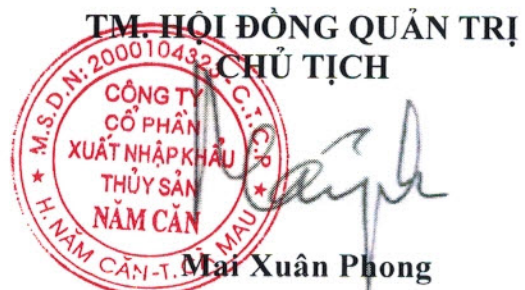 TM. HỘI ĐỒNG QUẢN TRỊ
CHỦ TỊCH
M.S.D.N: 2000104323-C.T.C.P
CÔNG TY
CỔ PHẦN
XUẤT NHẬP KHẨU
THỦY SẢN
NĂM CĂN
H. NĂM CĂN-T. CÀ MAU
Mai Xuân Phong